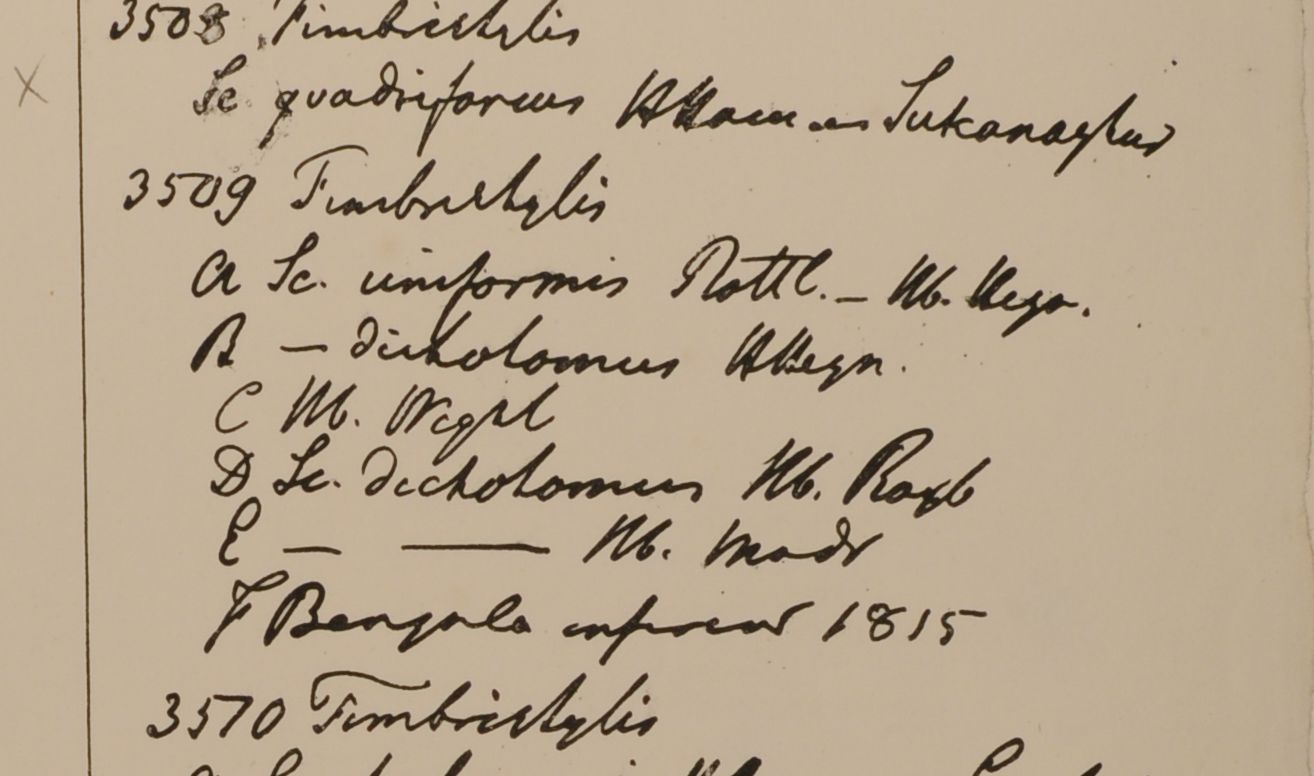 3508 Fimbristylis
Sc. quadriforus HHam Sukanaghur
3509 Fimbristylis
A Sc. uniformis Rottl. – Hb. Heyn.
B – dichotomus HHeyn.
C Hb. Wight
D Sc. dichotomus Hb. Roxb
E – —— Hb. Madr
F Bengala inferior 1815
3510 Fimbristylis